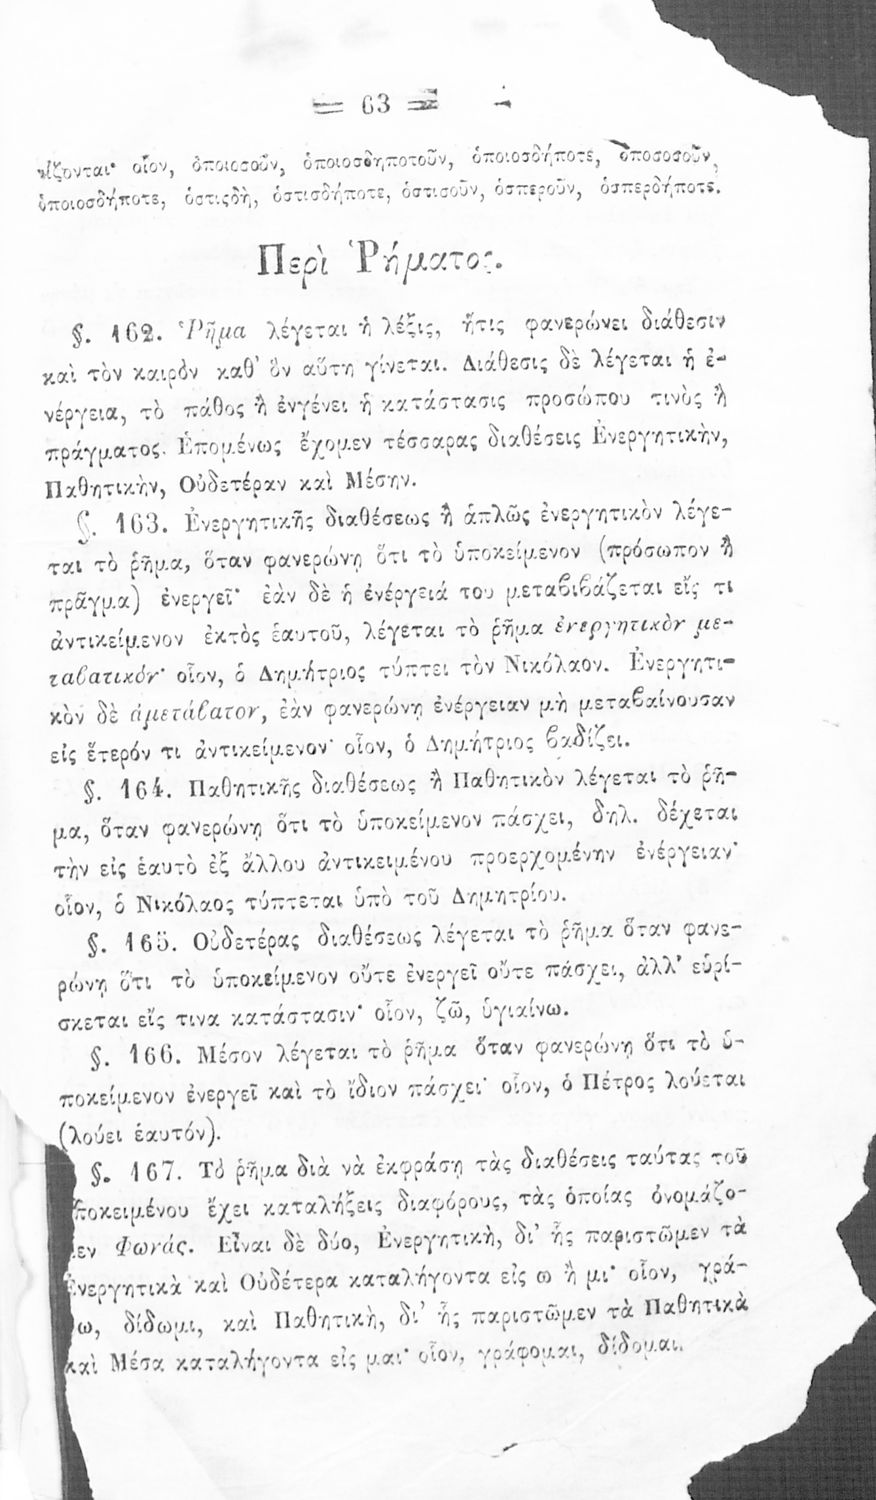 = 63 =
οἷον, ὁποιοσοῦν, ὁποιοσδηποτοῦν, ὁποιοσδήποτε, ὁποσοσοῦν,
ὁποιοσδήποτε, ὁστισδὴ, ὁστισδήποτε, ὁστισοῦν, ὁσπεροῦν, ὁσπερδήποτε.
Περὶ Ῥήματος.
§. 162. Ῥῆμα λέγεται ἡ λέξις, ἥτις φανερώνει διάθεσιν
καὶ τὸν καιρὸν καθ’ ὃν αὕτη γίνεται. Διάθεσις δὲ λέγεται ἡ ἐ-
νέργεια, τὸ πάθος ἢ ἐνγένει ἡ κατάστασις προσώπου τινὸς ἢ
πράγματος. Ἑπομένως ἔχομεν τέσσαρας διαθέσεις Ἐνεργητικὴν,
Παθητικὴν, Οὐδετέραν καὶ Μέσην.
§. 163. Ἐνεργητικῆς διαθέσεως ἢ ἁπλῶς ἐνεργητικὸν λέγε-
ται τὸ ῥῆμα, ὅταν φανερώνῃ ὅτι τὸ ὑποκείμενον (πρόσωπον ἢ
πρᾶγμα) ἐνεργεῖ· ἐὰν δὲ ἡ ἐνέργειά του μεταϐιϐάζεται εἴς τι
ἀντικείμενον ἐκτὸς ἑαυτοῦ, λέγεται τὸ ῥῆμα ἐνεργητικὸν με-
ταϐατικόν· οἷον, ὁ Δημήτριος τύπτει τὸν Νικόλαον. Ἐνεργητι-
κὸν δὲ ἀμετάϐατον, ἐὰν φανερώνῃ ἐνέργειαν μὴ μεταϐαίνουσαν
εἰς ἕτερόν τι ἀντικείμενον· οἷον, ὁ Δημήτριος ϐαδίζει.
§. 164. Παθητικῆς διαθέσεως ἢ Παθητικὸν λέγεται τὸ ῥῆ-
μα, ὅταν φανερώνῃ ὅτι τὸ ὑποκείμενον πάσχει, δηλ. δέχεται
τὴν εἰς ἑαυτὸ ἐξ ἄλλου ἀντικειμένου προερχομένην ἐνέργειαν·
οἷον, ὁ Νικόλαος τύπτεται ὑπὸ τοῦ Δημητρίου.
§. 165. Οὐδετέρας διαθέσεως λέγεται τὸ ῥῆμα ὅταν φανε-
ρώνῃ ὅτι τὸ ὑποκείμενον οὔτε ἐνεργεῖ οὔτε πάσχει, ἀλλ’ εὑρί-
σκεται εἴς τινα κατάστασιν· οἷον, ζῶ, ὑγιαίνω.
§. 166. Μέσον λέγεται τὸ ῥῆμα ὅταν φανερώνῃ ὅτι τὸ ὑ-
ποκείμενον ἐνεργεῖ καὶ τὸ ἴδιον πάσχει· οἷον, ὁ Πέτρος λούεται
(λούει ἑαυτόν).
§. 167. Τὸ ῥῆμα διὰ νὰ ἐκφράσῃ τὰς διαθέσεις ταύτας τοῦ
ὑποκειμένου ἔχει καταλήξεις διαφόρους, τὰς ὁποίας ὀνομάζο-
μεν Φωνάς. Εἶναι δὲ δύο, Ἐνεργητικὴ, δι’ ἧς παριστῶμεν τὰ
Ἐνεργητικὰ καὶ Οὐδέτερα καταλήγοντα εἰς ω ἢ μι· οἷον, γρά-
φω, δίδωμι, καὶ Παθητικὴ, δι’ ἧς παριστῶμεν τὰ Παθητικὰ
καὶ Μέσα καταλήγοντα εἰς μαι· οἷον, γράφομαι, δίδομαι.